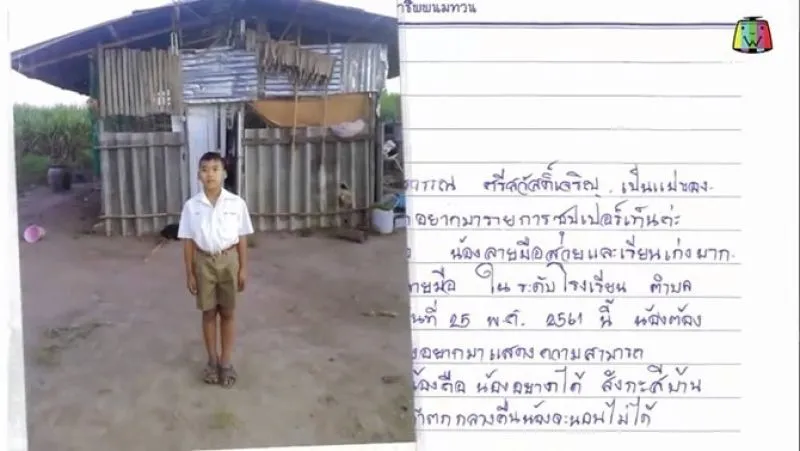 าชีพพนมทวน
ศรีสวัสดิ์เจริญ เป็นแม่ของ
อยากมารายการซุปเปอร์เท็นค่ะ
น้องลายมือสวยและเรียนเก่งมาก
ายมือ ในระดับโรงเรียน ตำบล
นที่ 25 พ.ศ. 2561 นี้ น้องต้อง
อยากมาแสดงความสามารถ
้องคือ น้องอยากได้ สังกะสีบ้าน
ตกกลางคืนน้องจะนอนไม่ได้
W